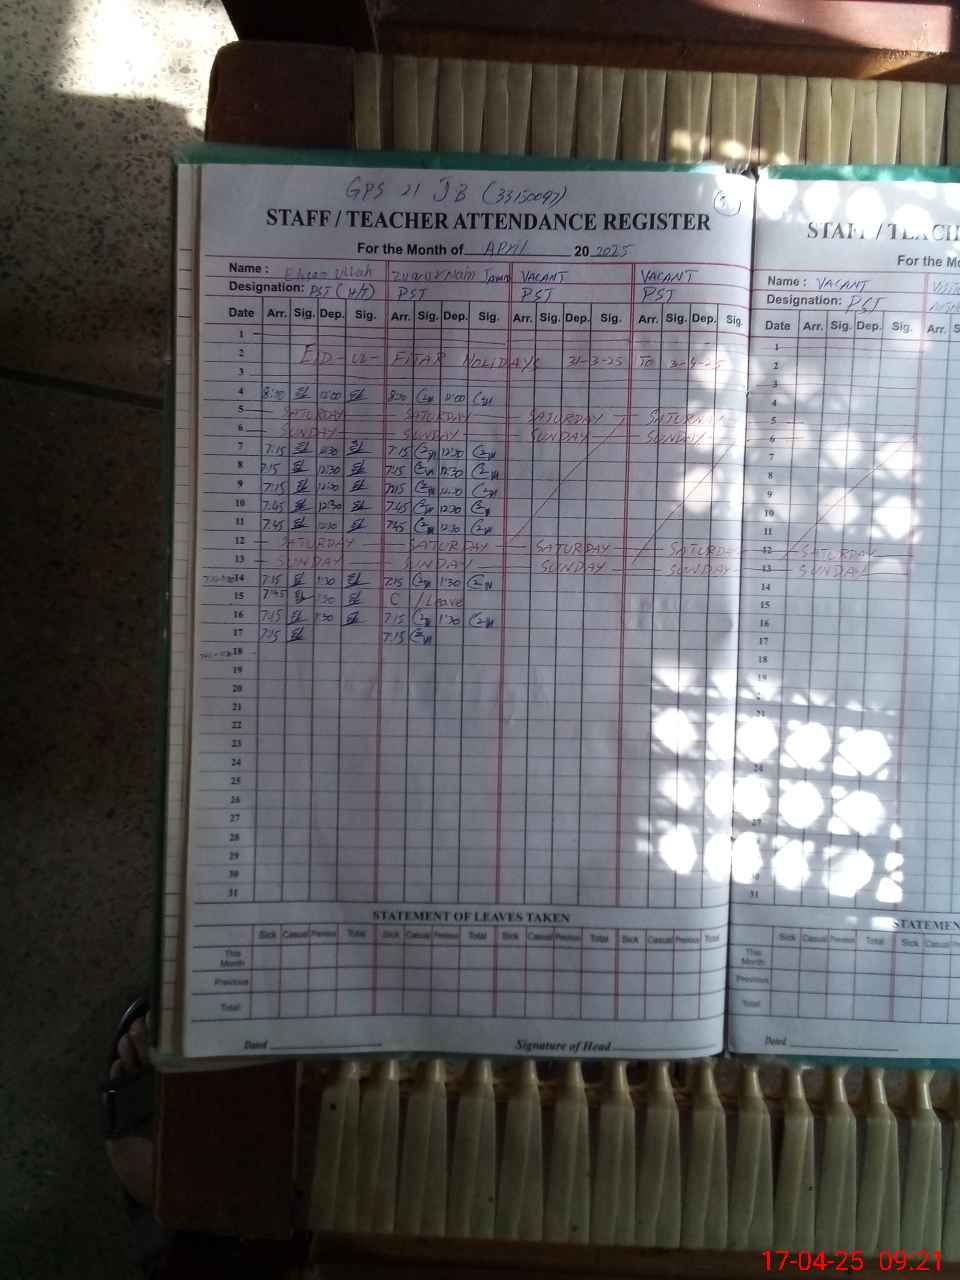 GPS 21 JB (33150097)
STAFF / TEACHER ATTENDANCE REGISTER
For the Month of APRIL 20 2025
Name : Ehsan Ullah VACANT VACANT
Designation: PST (H/T) PST PST PST
Date Arr. Sig. Dep. Sig. Arr. Sig. Dep. Sig. Arr. Sig. Dep. Sig. Arr. Sig. Dep. Sig.
1
2 EID-UL-FITAR HOLIDAYS 31-3-25 TO
3
4 8:30 12:00 8:30 12:00
5 SATURDAY SATURDAY SATURDAY SATURDAY
6 SUNDAY SUNDAY SUNDAY
7 7:15 12:30 7:15 12:30
8 7:15 12:30 7:15 12:30
9 7:15 12:30 7:15 12:30
10 7:45 12:30 7:45 12:30
11 7:45 12:30 7:45 12:30
12 SATURDAY SATURDAY SATURDAY SATURDAY
13 SUNDAY SUNDAY SUNDAY SUNDAY
14 7:15 1:30 7:15 1:30
15 7:45 1:30 C / Leave
16 7:15 1:30 7:15 1:30
17 7:15 7:15
18
19
20
21
22
23
24
25
26
27
28
29
30
31
STATEMENT OF LEAVES TAKEN
Sick Casual Previous Total Sick Casual Previous Total Sick Casual Previous Total Sick Casual Previous Total
This Month
Previous
Total
Dated Signature of Head
STAFF / TEACH
For the Mo
Name : VACANT
Designation: PST
Date Arr. Sig. Dep. Sig. Arr. S
1
2
3
4
5
6
7
8
9
10
11
12 SATURDAY
13 SUNDAY
14
15
16
17
18
19
21
24
27
31
STATEMEN
Sick Casual Previous Total Sick Casual
This Month
Previous
Total
Dated
17-04-25 09:21